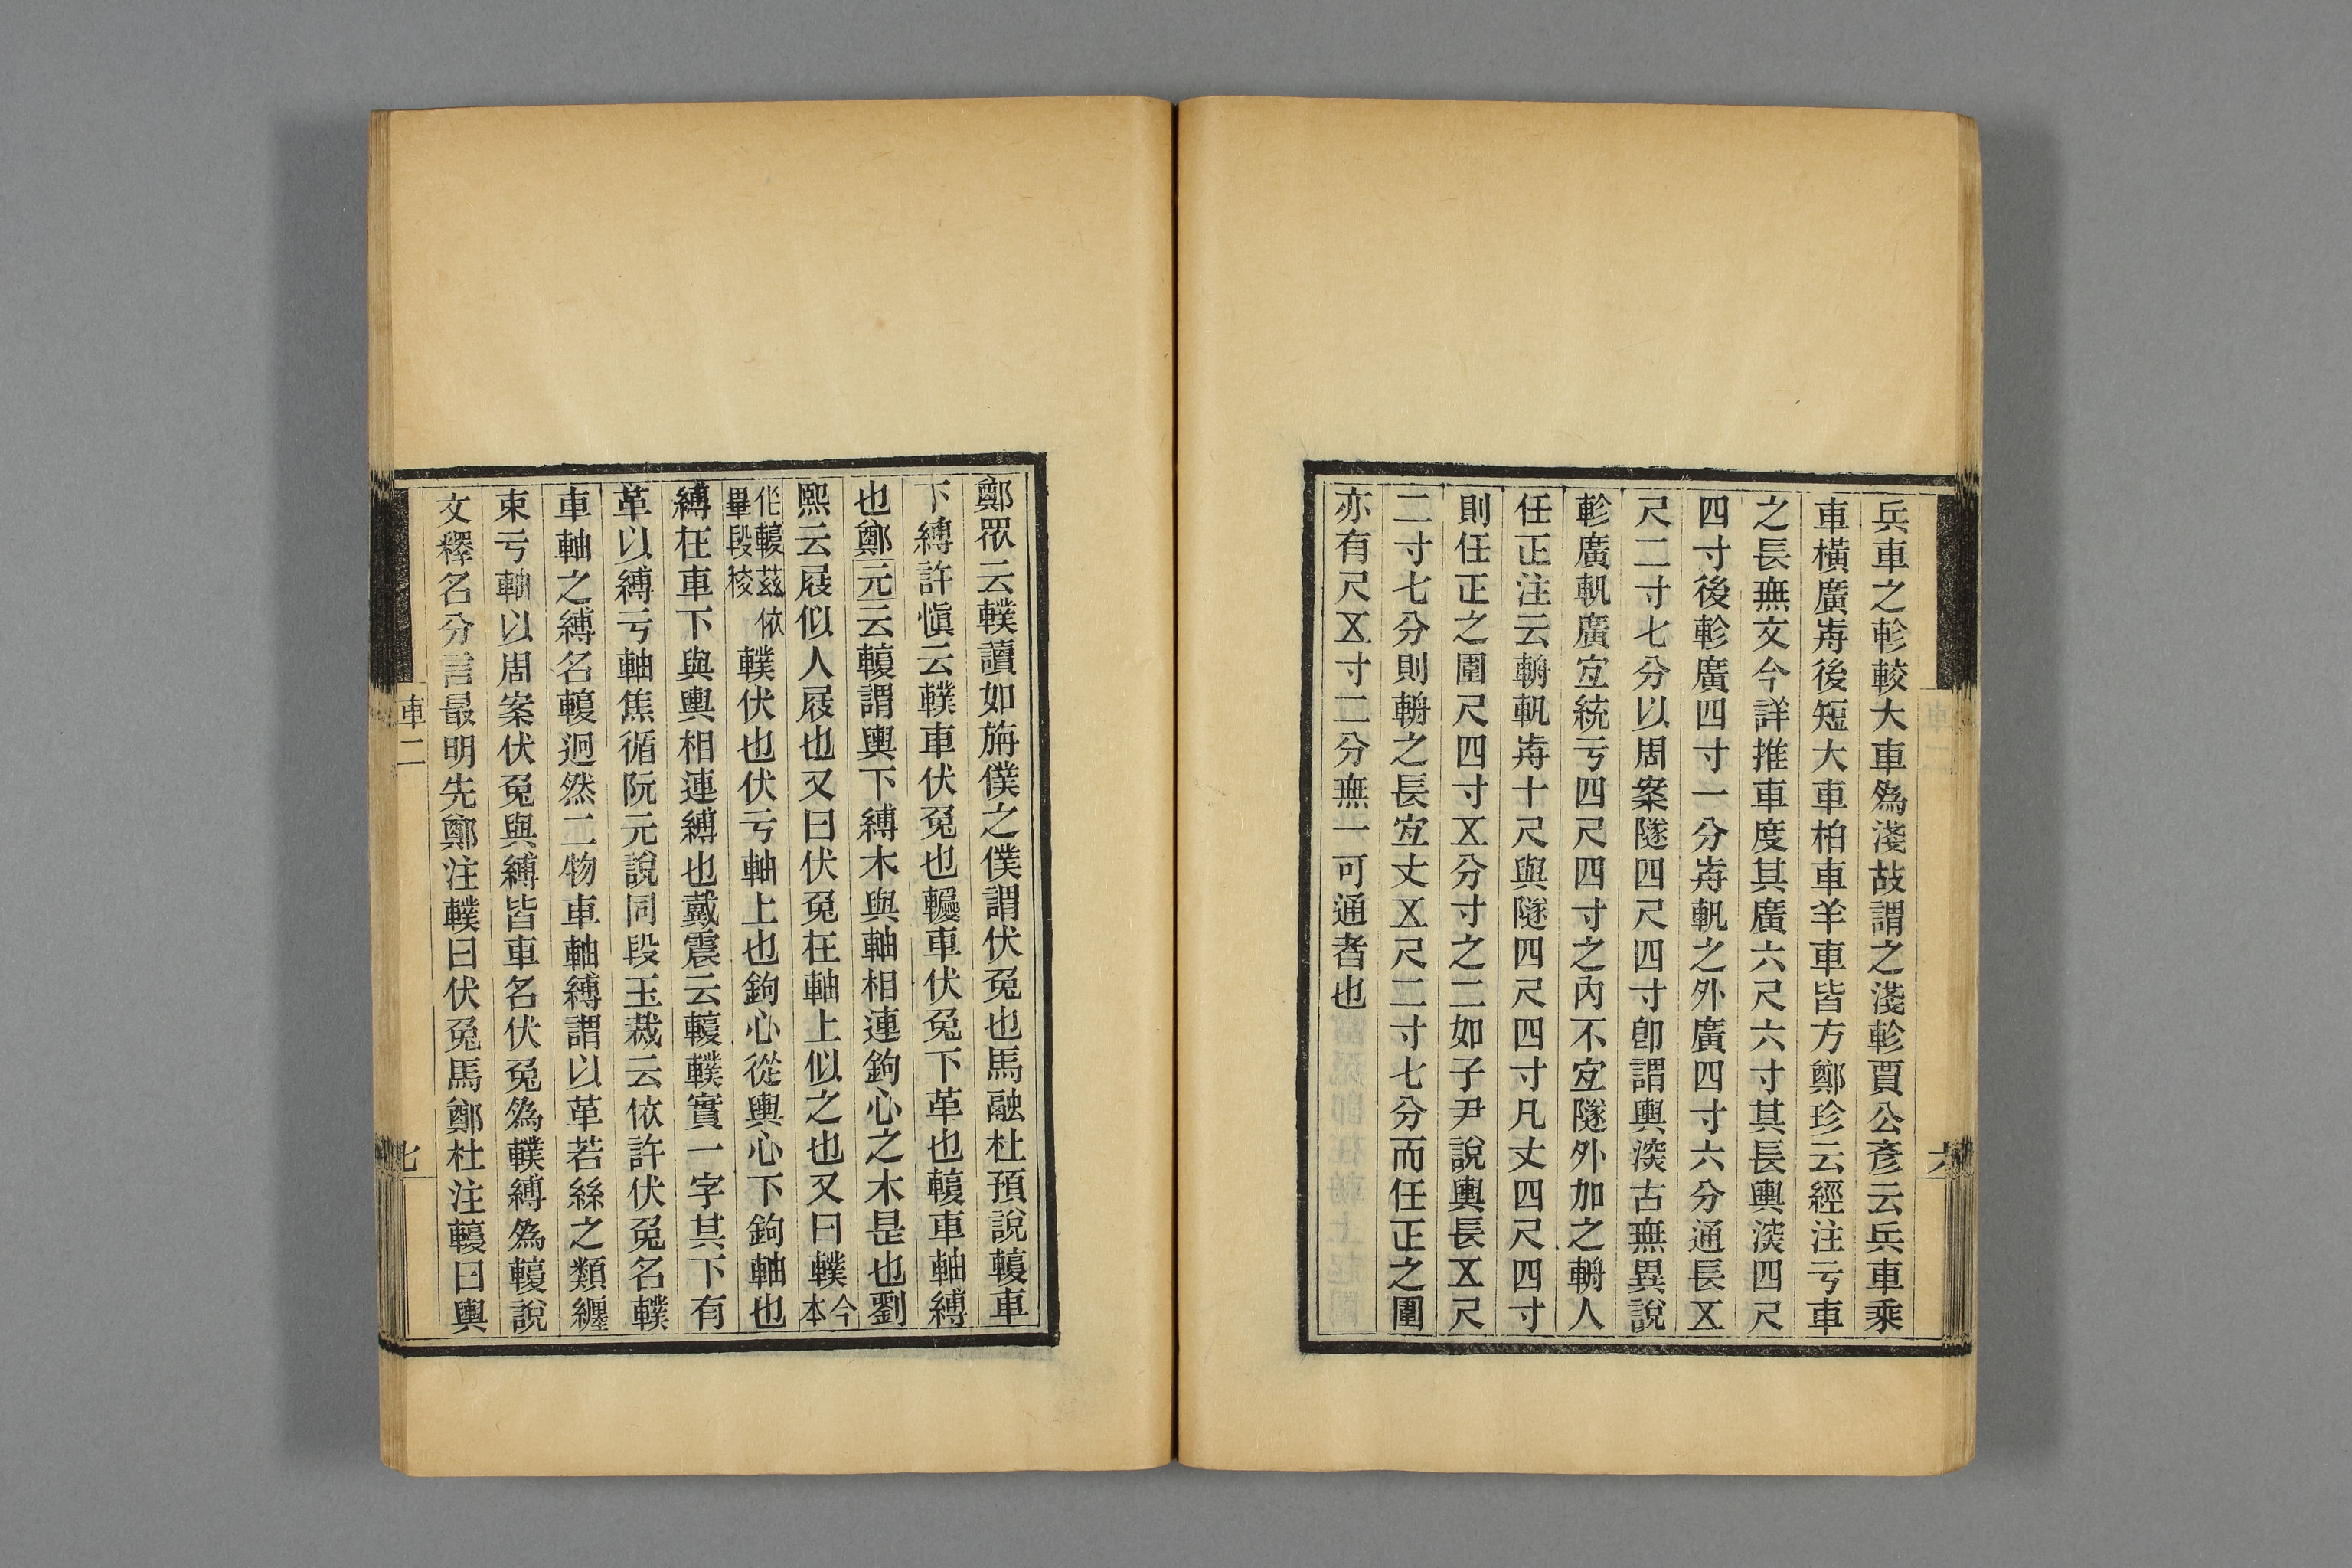 兵車之軫較大車爲淺故謂之淺軫賈公彥云兵車乘
車橫廣歬後短大車柏車羊車皆方鄭珍云經注亏車
之長無文今詳推車度其廣六尺六寸其長輿湥四尺
四寸後軫廣四寸一分歬軓之外廣四寸六分通長㐅
尺二寸七分以周案隧四尺四寸卽謂輿湥古無異說
軫廣軓廣宐統亏四尺四寸之內不宐隧外加之輈人
任正注云輈軓歬十尺與隧四尺四寸凡丈四尺四寸
則任正之圍尺四寸㐅分寸之二如子尹說輿長㐅尺
二寸七分則輈之長宐丈㐅尺二寸七分而任正之圍
亦有尺㐅寸二分無一可通者也
六
鄭眾云轐讀如旃僕之僕謂伏兔也馬融杜預說輹車
下縛許愼云轐車伏兔也䡺車伏兔下革也輹車軸縛
也鄭元云輹謂輿下縛木與軸相連鉤心之木是也劉
熙云屐似人屐也又曰伏兔在軸上似之也又曰轐今本
作輹茲依畢段校轐伏也伏亏軸上也鉤心從輿心下鉤軸也
縛在車下與輿相連縛也戴震云輹轐實一字其下有
革以縛亏軸焦循阮元說同段玉裁云依許伏兔名轐
車軸之縛名輹迥然二物車軸縛謂以革若絲之類纏
束亏軸以周案伏兔與縛皆車名伏兔爲轐縛爲輹說
文釋名分言最明先鄭注轐曰伏兔馬鄭杜注輹曰輿
車二
七